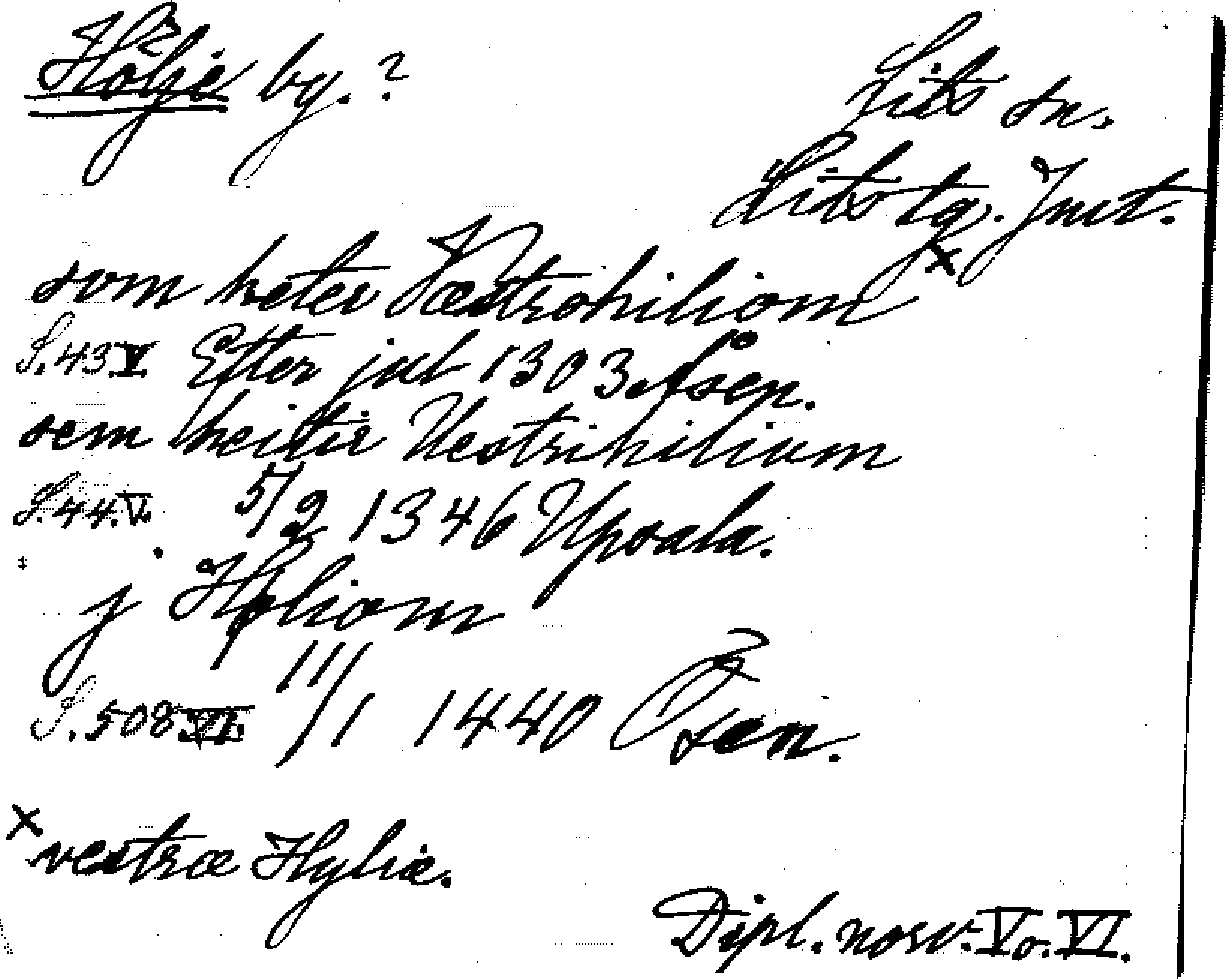 Hölje by.?
Lits sn.
Lits tg. Jmt.
som heter Vestrohiliom x
S. 43 V Efter jul 1303 Åsen.
sem heitir Uestrihilium
S. 44 V. 5/2 1346 Upsala.
j Høliom
S. 508 VI. 11/1 1440 Ösen.
x vestræ Hyliæ.
Dipl. norv. V o. VI.